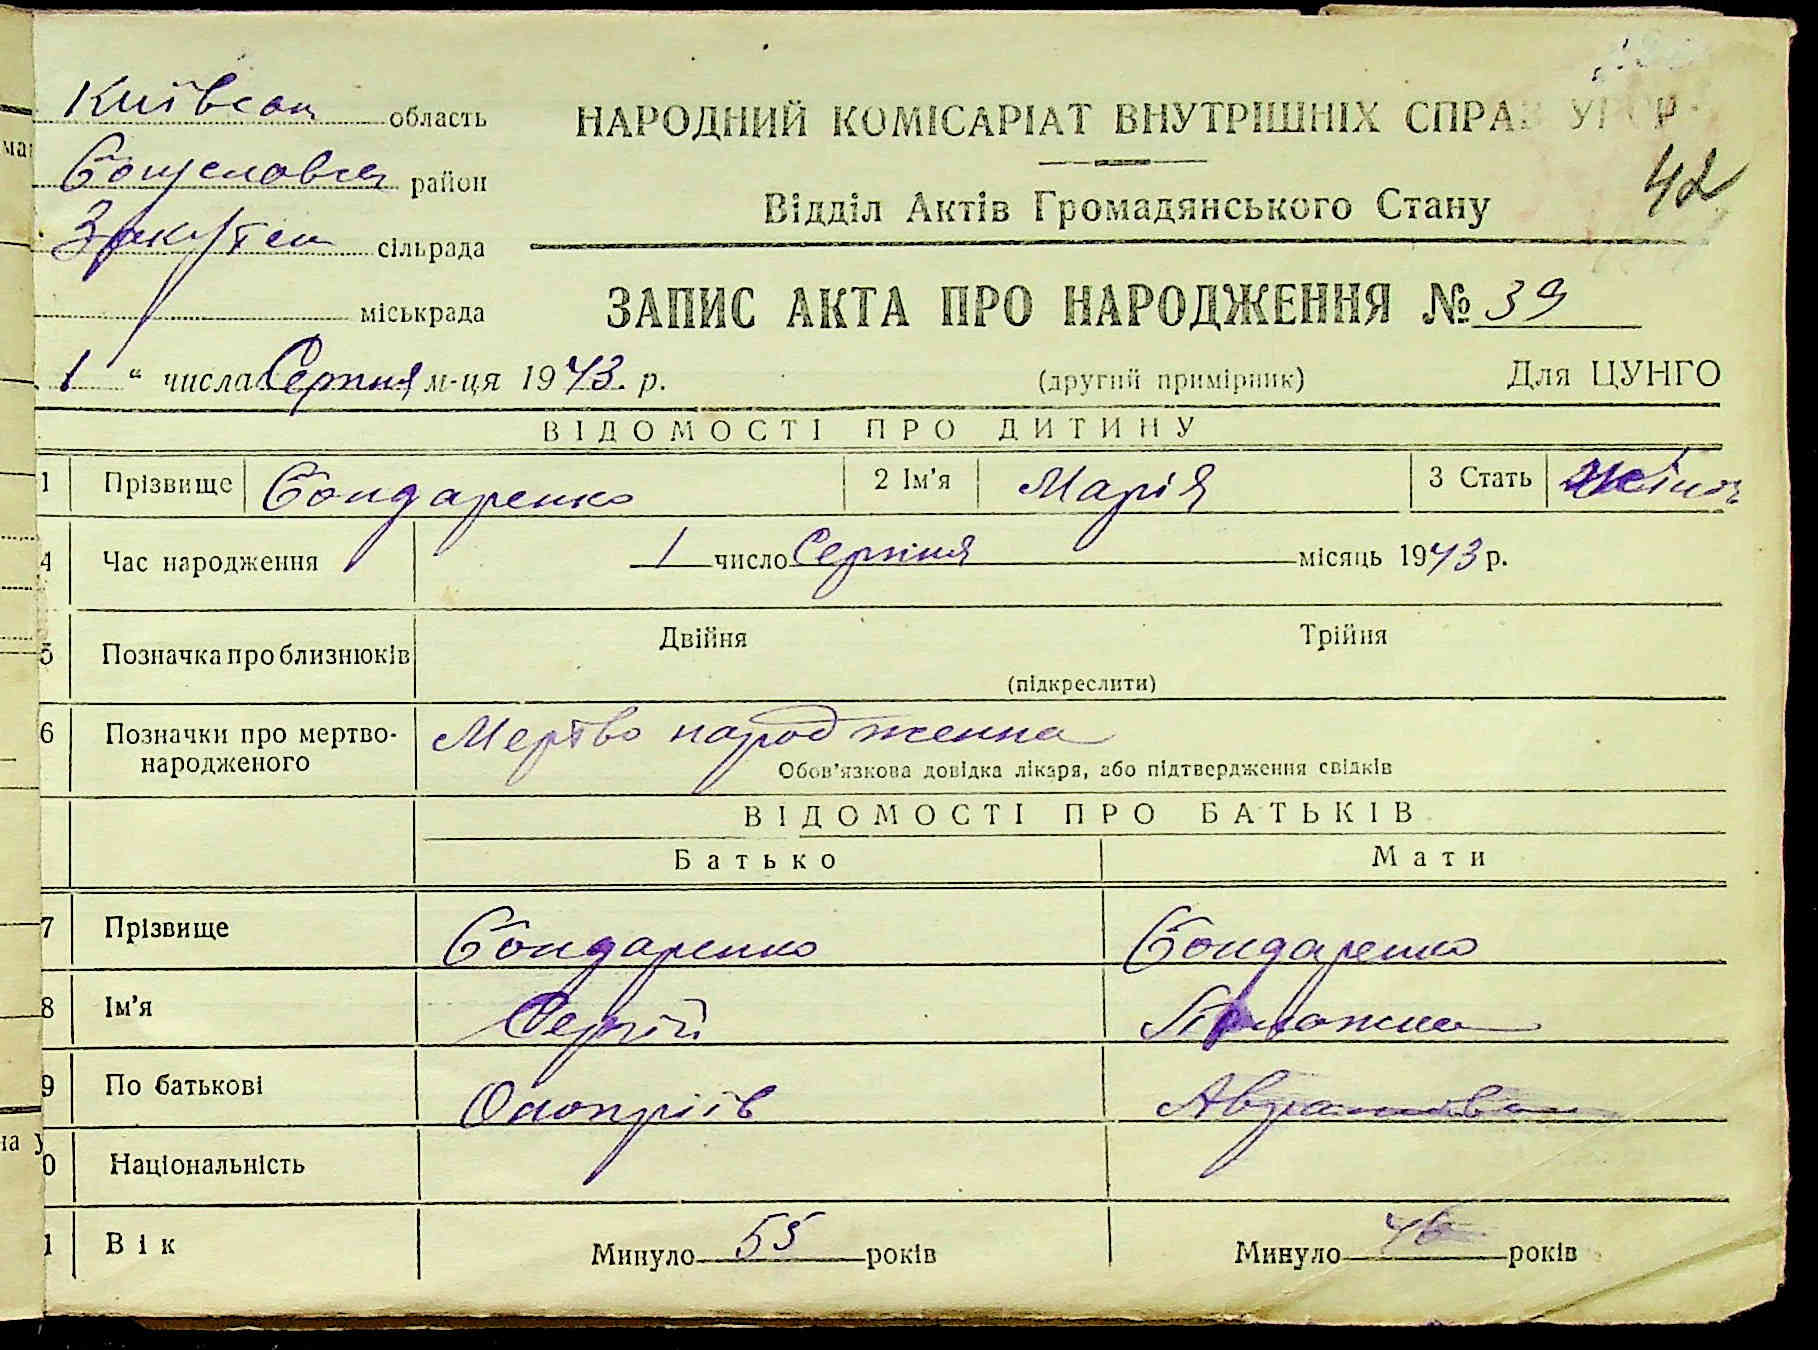 Київська область
Богуславськ район
НАРОДНИЙ КОМІСАРІАТ ВНУТРІШНІХ СПРАВ УРСР
42
Закутськ сільрада
Відділ Актів Громадянського Стану
міськрада
ЗАПИС АКТА ПРО НАРОДЖЕННЯ № 39
1 " числа Серпня м-ця 1943 р.
(другий примірник) Для ЦУНГО
ВІДОМОСТІ ПРО ДИТИНУ
1 Прізвище Бондаренко 2 Ім'я Марія 3 Стать Жіноч
4 Час народження 1 число Серпня місяць 1943 р.
5 Позначка про близнюків Двійня Трійня
(підкреслити)
6 Позначки про мертво-
народженого
Мертво народженна
Обов'язкова довідка лікаря, або підтвердження свідків
ВІДОМОСТІ ПРО БАТЬКІВ
Батько Мати
7 Прізвище Бондаренко Бондаренко
8 Ім'я Сергій
9 По батькові Онопріїв
0 Національність
1 Вік Минуло 55 років Минуло 46 років